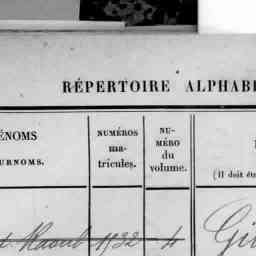 RÉPERTOIRE ALPHABÉ
ÉNOMS
URNOMS.
NUMÉROS
ma-
tricules.
NU-
MÉRO
du
volume.
(Il doit êt
Raoul 1932 4
Gi